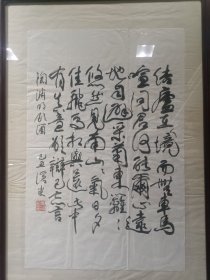 結廬在人境而無車馬
喧問君何能爾心遠
地自偏采菊東籬下
悠然見南山山氣日夕
佳飛鳥相與還此中
有真意欲辯已忘言
陶淵明